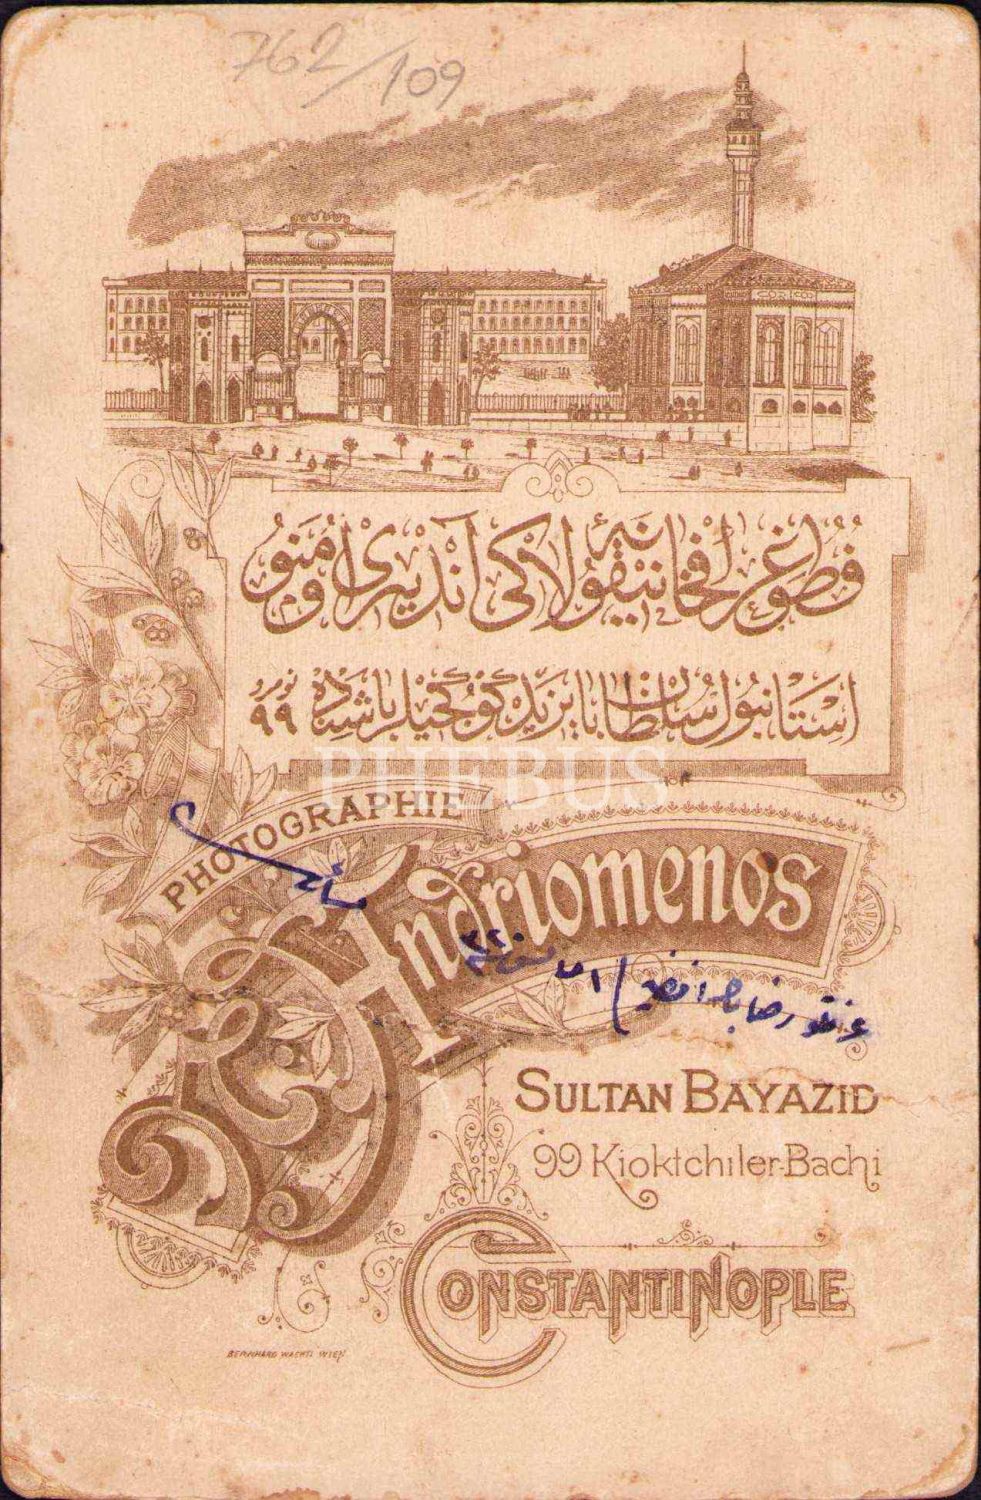 762/109
فطوغرافخانه نیقولاکی اندریومنو
استانبول سلطان بایزید کوکجیلر باشنده نومرو ٩٩
PHEBUS
PHOTOGRAPHIE
N Andriomenos
SULTAN BAYAZID
99 Kioktchiler-Bachi
CONSTANTINOPLE
BERNHARD WACHTL WIEN